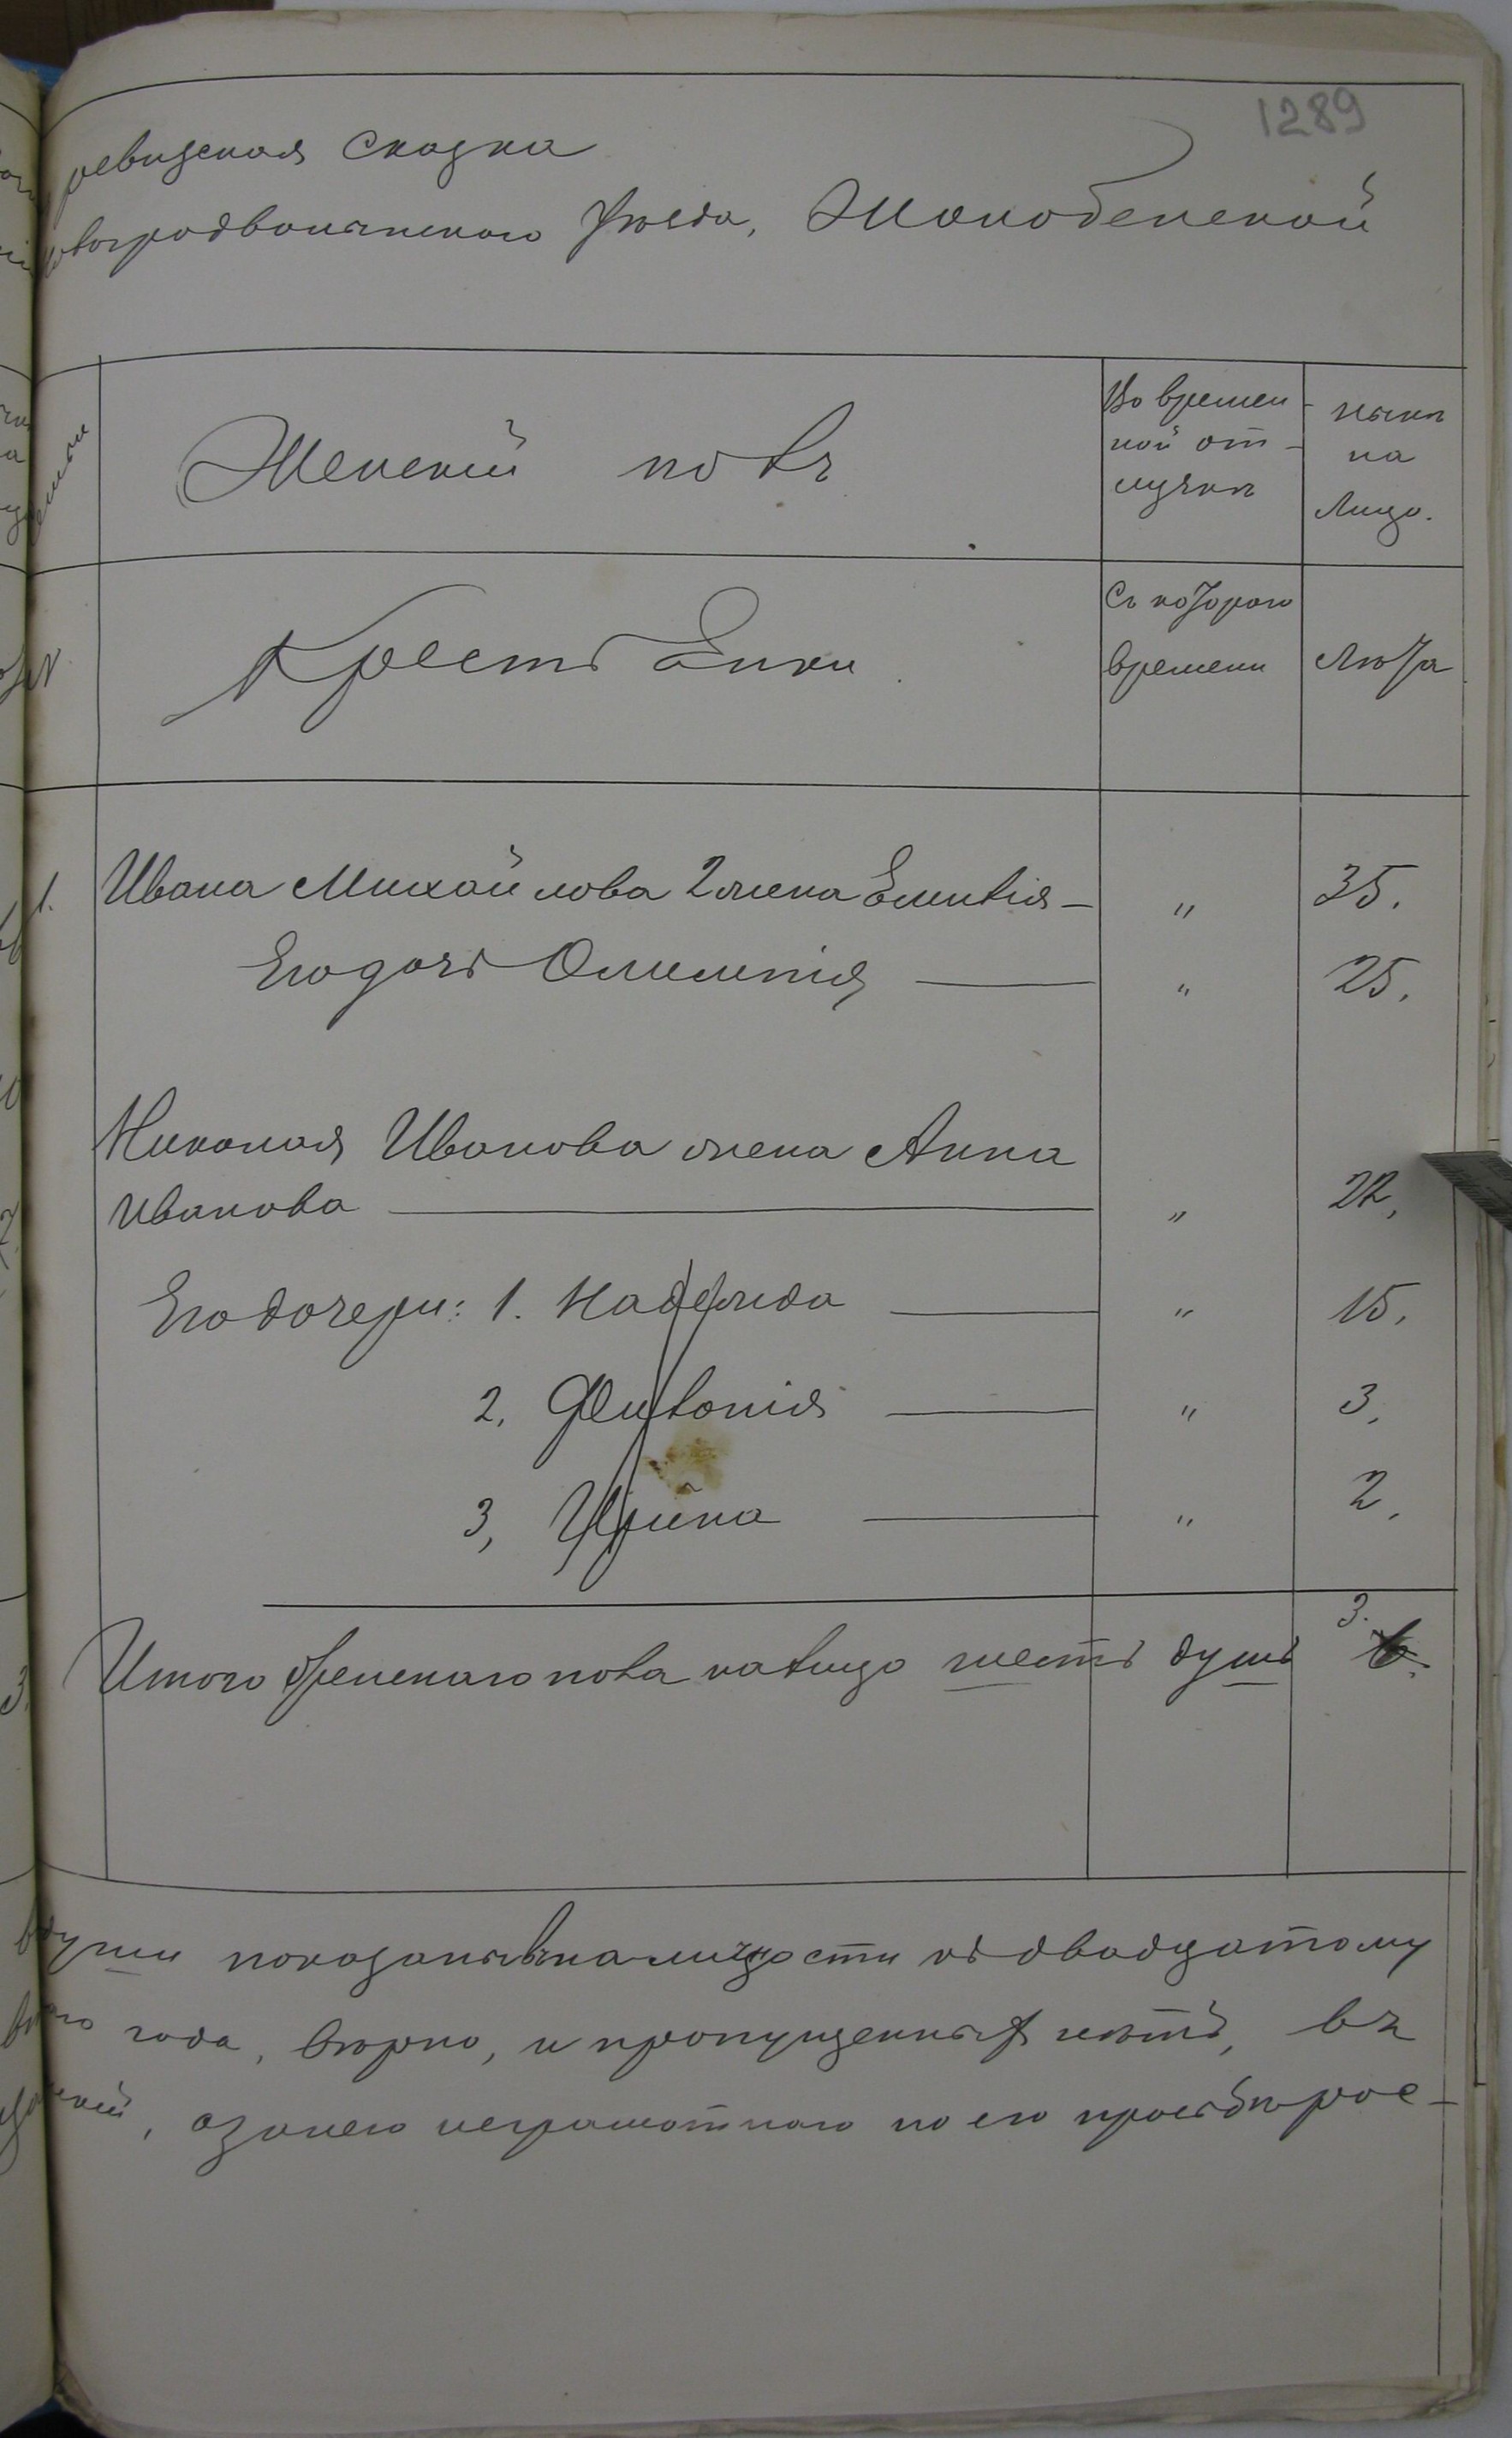 1289
ревизская сказка
уезда, Жолобенской
Женскiй полъ
Во времен-
ной от-
лучкѣ
нынѣ
на
лицо.
Крестьянки
Съ котораго
времени
лѣта
1. Ивана Михайлова 2 жена Емилiя - " 35.
Его дочь Олимпiя " 25.
Николая Иванова жена Анна
Иванова " 22,
Его дочери: 1. Надежда " 15.
2, Феутонiя " 3.
3, Ирина " 2.
3.
Итого женскаго пола налицо шесть душъ 6.
души показаны въ наличности къ двадцатому
года, вѣрно, и пропущенныхъ нѣтъ, въ
, а за него неграмотнаго по его просьбѣ рос-